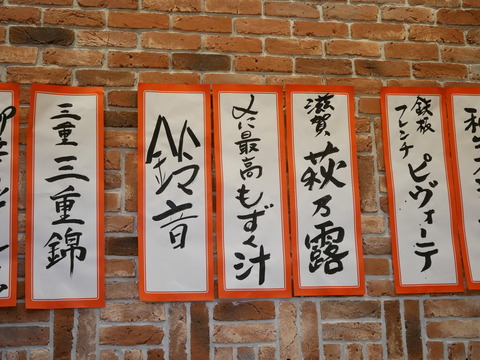 三重 三重錦
鈴音
〆に最高もずく汁
滋賀 萩乃露
鉄板フレンチ ピヴォーテ